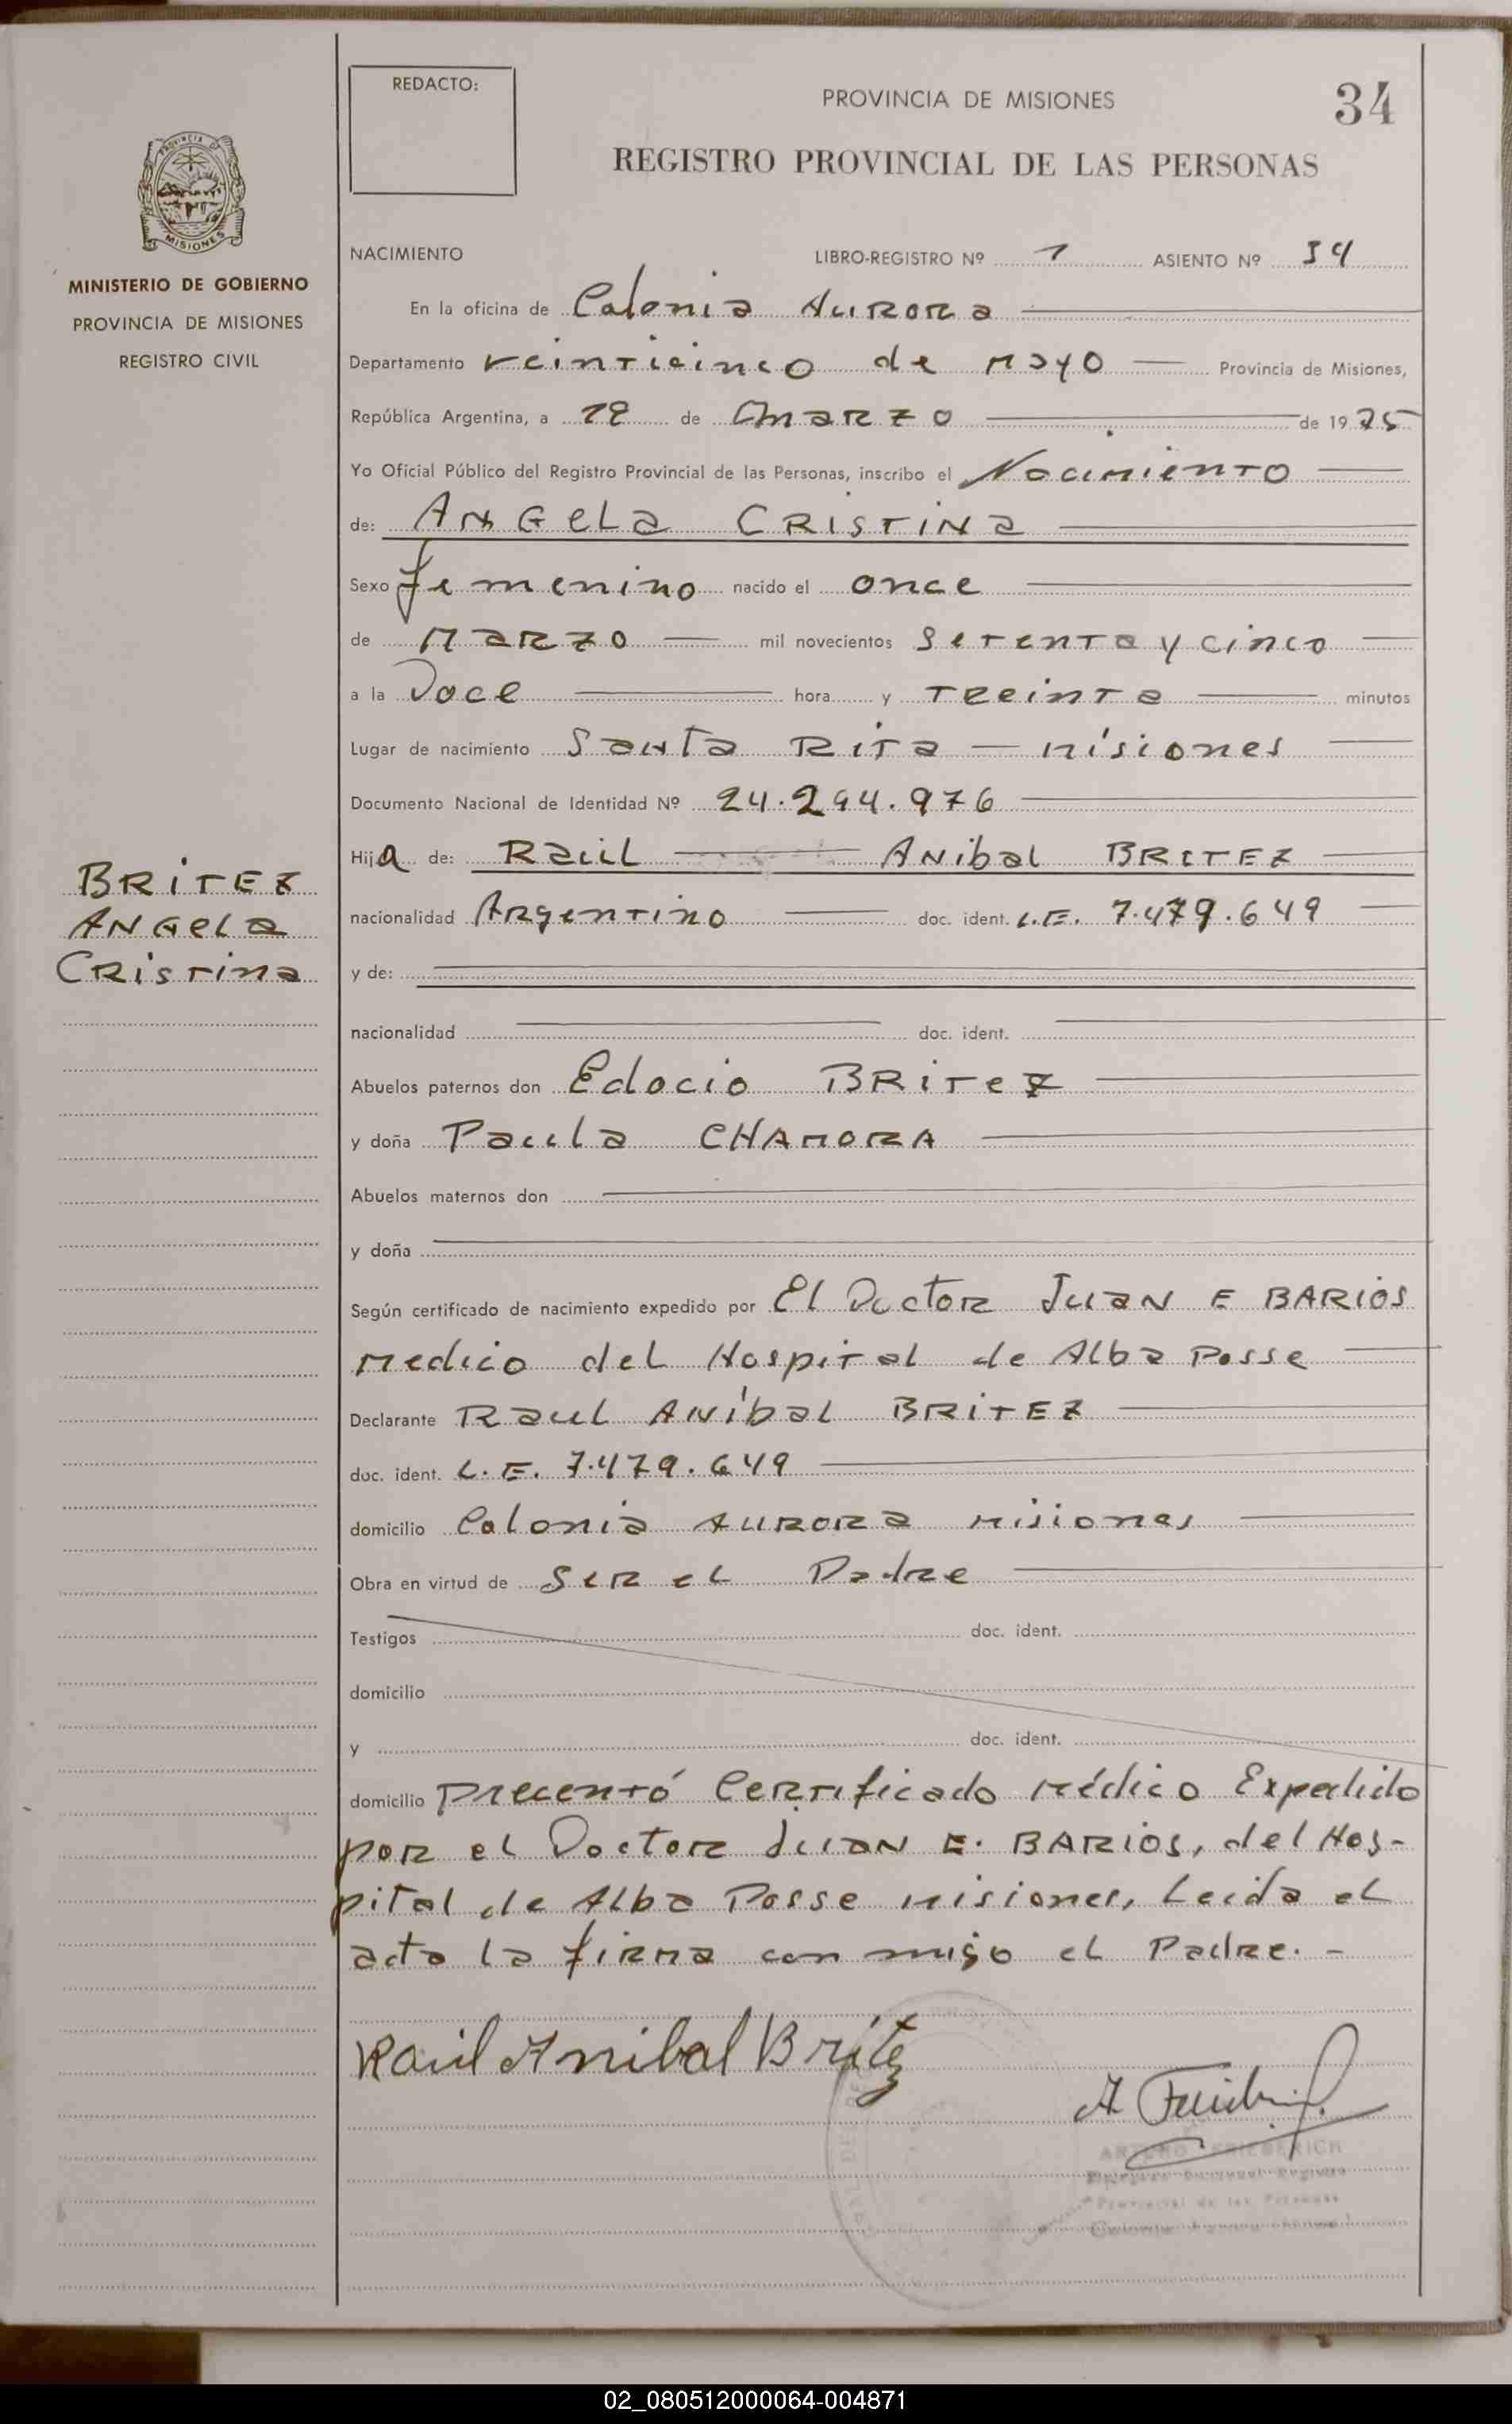 REDACTO:
PROVINCIA DE MISIONES
34
REGISTRO PROVINCIAL DE LAS PERSONAS
PROVINCIA DE
MISIONES
MINISTERIO DE GOBIERNO
PROVINCIA DE MISIONES
REGISTRO CIVIL
NACIMIENTO LIBRO-REGISTRO Nº 1 ASIENTO Nº 34
En la oficina de Colonia AURORA
Departamento veinticinco de Mayo Provincia de Misiones,
República Argentina, a de Marzo de 1975
Yo Oficial Público del Registro Provincial de las Personas, inscribo el Nacimiento
de: ANGeLa CRISTINa
Sexo femenino nacido el once
de Marzo mil novecientos Setenta y cinco
a la Doce hora y Treinta minutos
Lugar de nacimiento Santa Rita - Misiones
Documento Nacional de Identidad Nº 24.294.976
Hija de: Raúl ANibal BRITEZ
nacionalidad Argentino doc. ident. L.E. 7.479.649
y de:
nacionalidad doc. ident.
Abuelos paternos don Edocio BRiTeZ
y doña Paula CHAMORA
Abuelos maternos don
y doña
Según certificado de nacimiento expedido por El Doctor Juan E BARIOS
Medico del Hospital de Alba Posse
Declarante Raul ANíbal BRiTEZ
doc. ident. L.E. 7.479.649
domicilio Colonia AURORa Misiones
Obra en virtud de Ser el Padre
Testigos doc. ident.
domicilio
y doc. ident.
domicilio Precentó Certificado Médico Expedido
por el Doctor Juan E. BARIOS, del Hos-
pital de Alba Posse Misiones, Leida el
acta la firma con migo el Padre. -
BRiTEZ
ANGeLa
CRistina
Raúl Anibal Britez
ARTURO FRIEBERICH
Provincial de las Personas
02_080512000064-004871